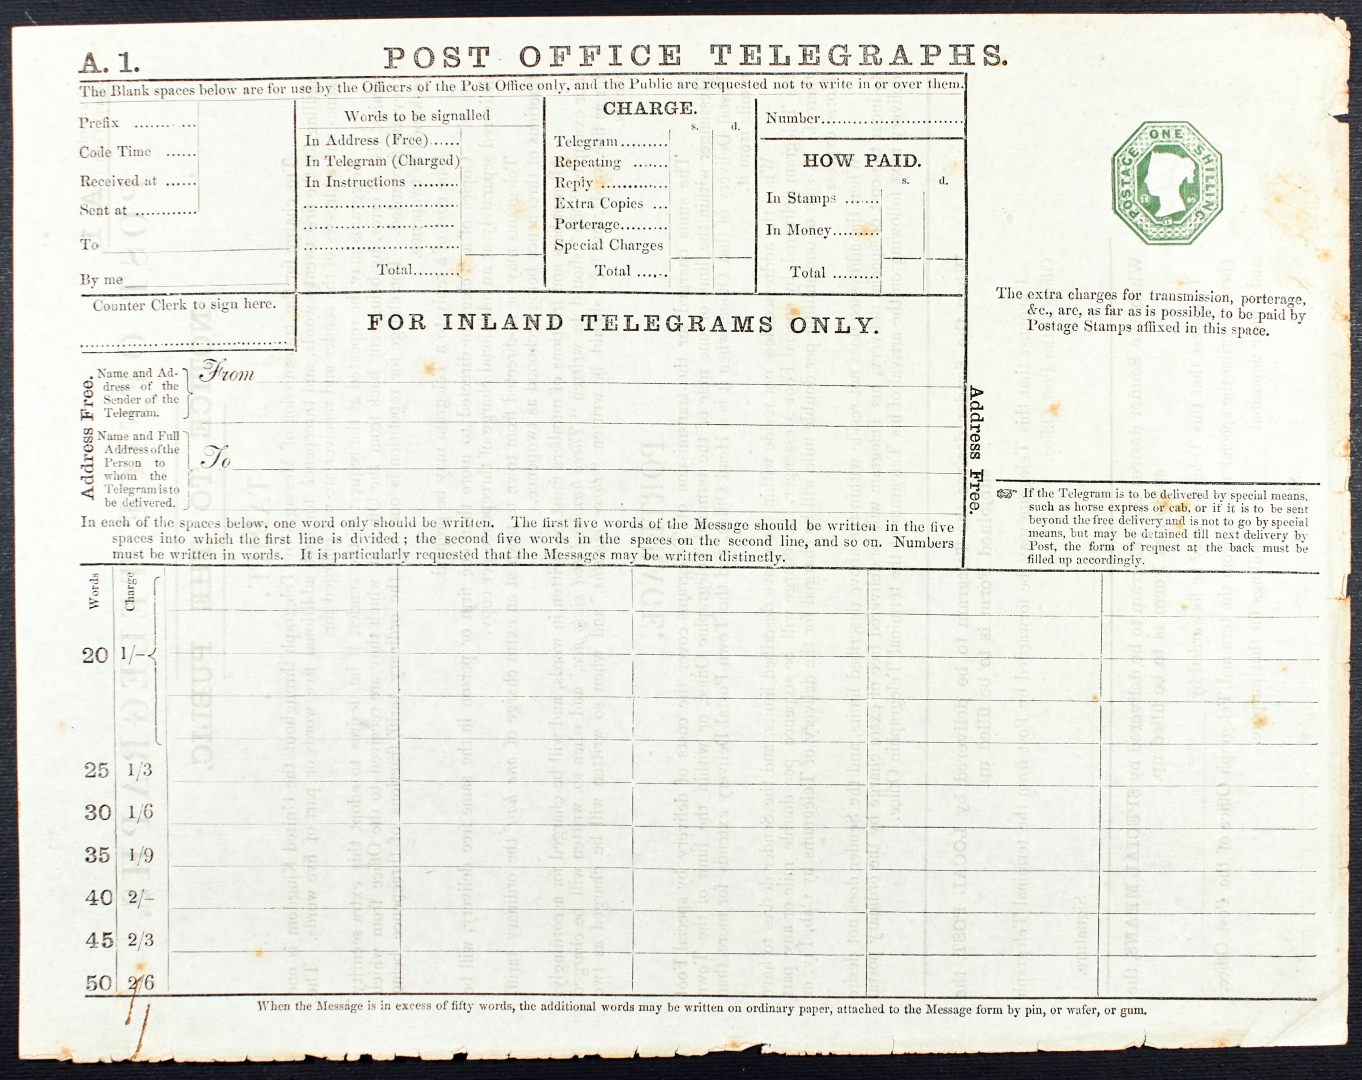 A. 1.
POST OFFICE TELEGRAPHS.
The Blank spaces below are for use by the Officers of the Post Office only, and the Public are requested not to write in or over them.
Prefix ...........
Code Time ......
Received at ......
Sent at ............
To
By me
Counter Clerk to sign here.
Words to be signalled
In Address (Free)......
In Telegram (Charged)
In Instructions .........
Total.........
CHARGE.
s. d.
Telegram.........
Repeating .......
Reply .............
Extra Copies ...
Porterage.........
Special Charges
Total ......
Number...........................
HOW PAID.
s. d.
In Stamps .......
In Money.........
Total .........
POSTAGE ONE SHILLING
The extra charges for transmission, porterage,
&c., are, as far as is possible, to be paid by
Postage Stamps affixed in this space.
FOR INLAND TELEGRAMS ONLY.
Address Free.
Name and Ad-
dress of the
Sender of the
Telegram.
From
Name and Full
Address of the
Person to
whom the
Telegram is to
be delivered.
To
Address Free.
☞ If the Telegram is to be delivered by special means,
such as horse express or cab, or if it is to be sent
beyond the free delivery and is not to go by special
means, but may be detained till next delivery by
Post, the form of request at the back must be
filled up accordingly.
In each of the spaces below, one word only should be written. The first five words of the Message should be written in the five
spaces into which the first line is divided; the second five words in the spaces on the second line, and so on. Numbers
must be written in words. It is particularly requested that the Messages may be written distinctly.
Words Charge
20 1/-
25 1/3
30 1/6
35 1/9
40 2/-
45 2/3
50 2/6
When the Message is in excess of fifty words, the additional words may be written on ordinary paper, attached to the Message form by pin, or wafer, or gum.